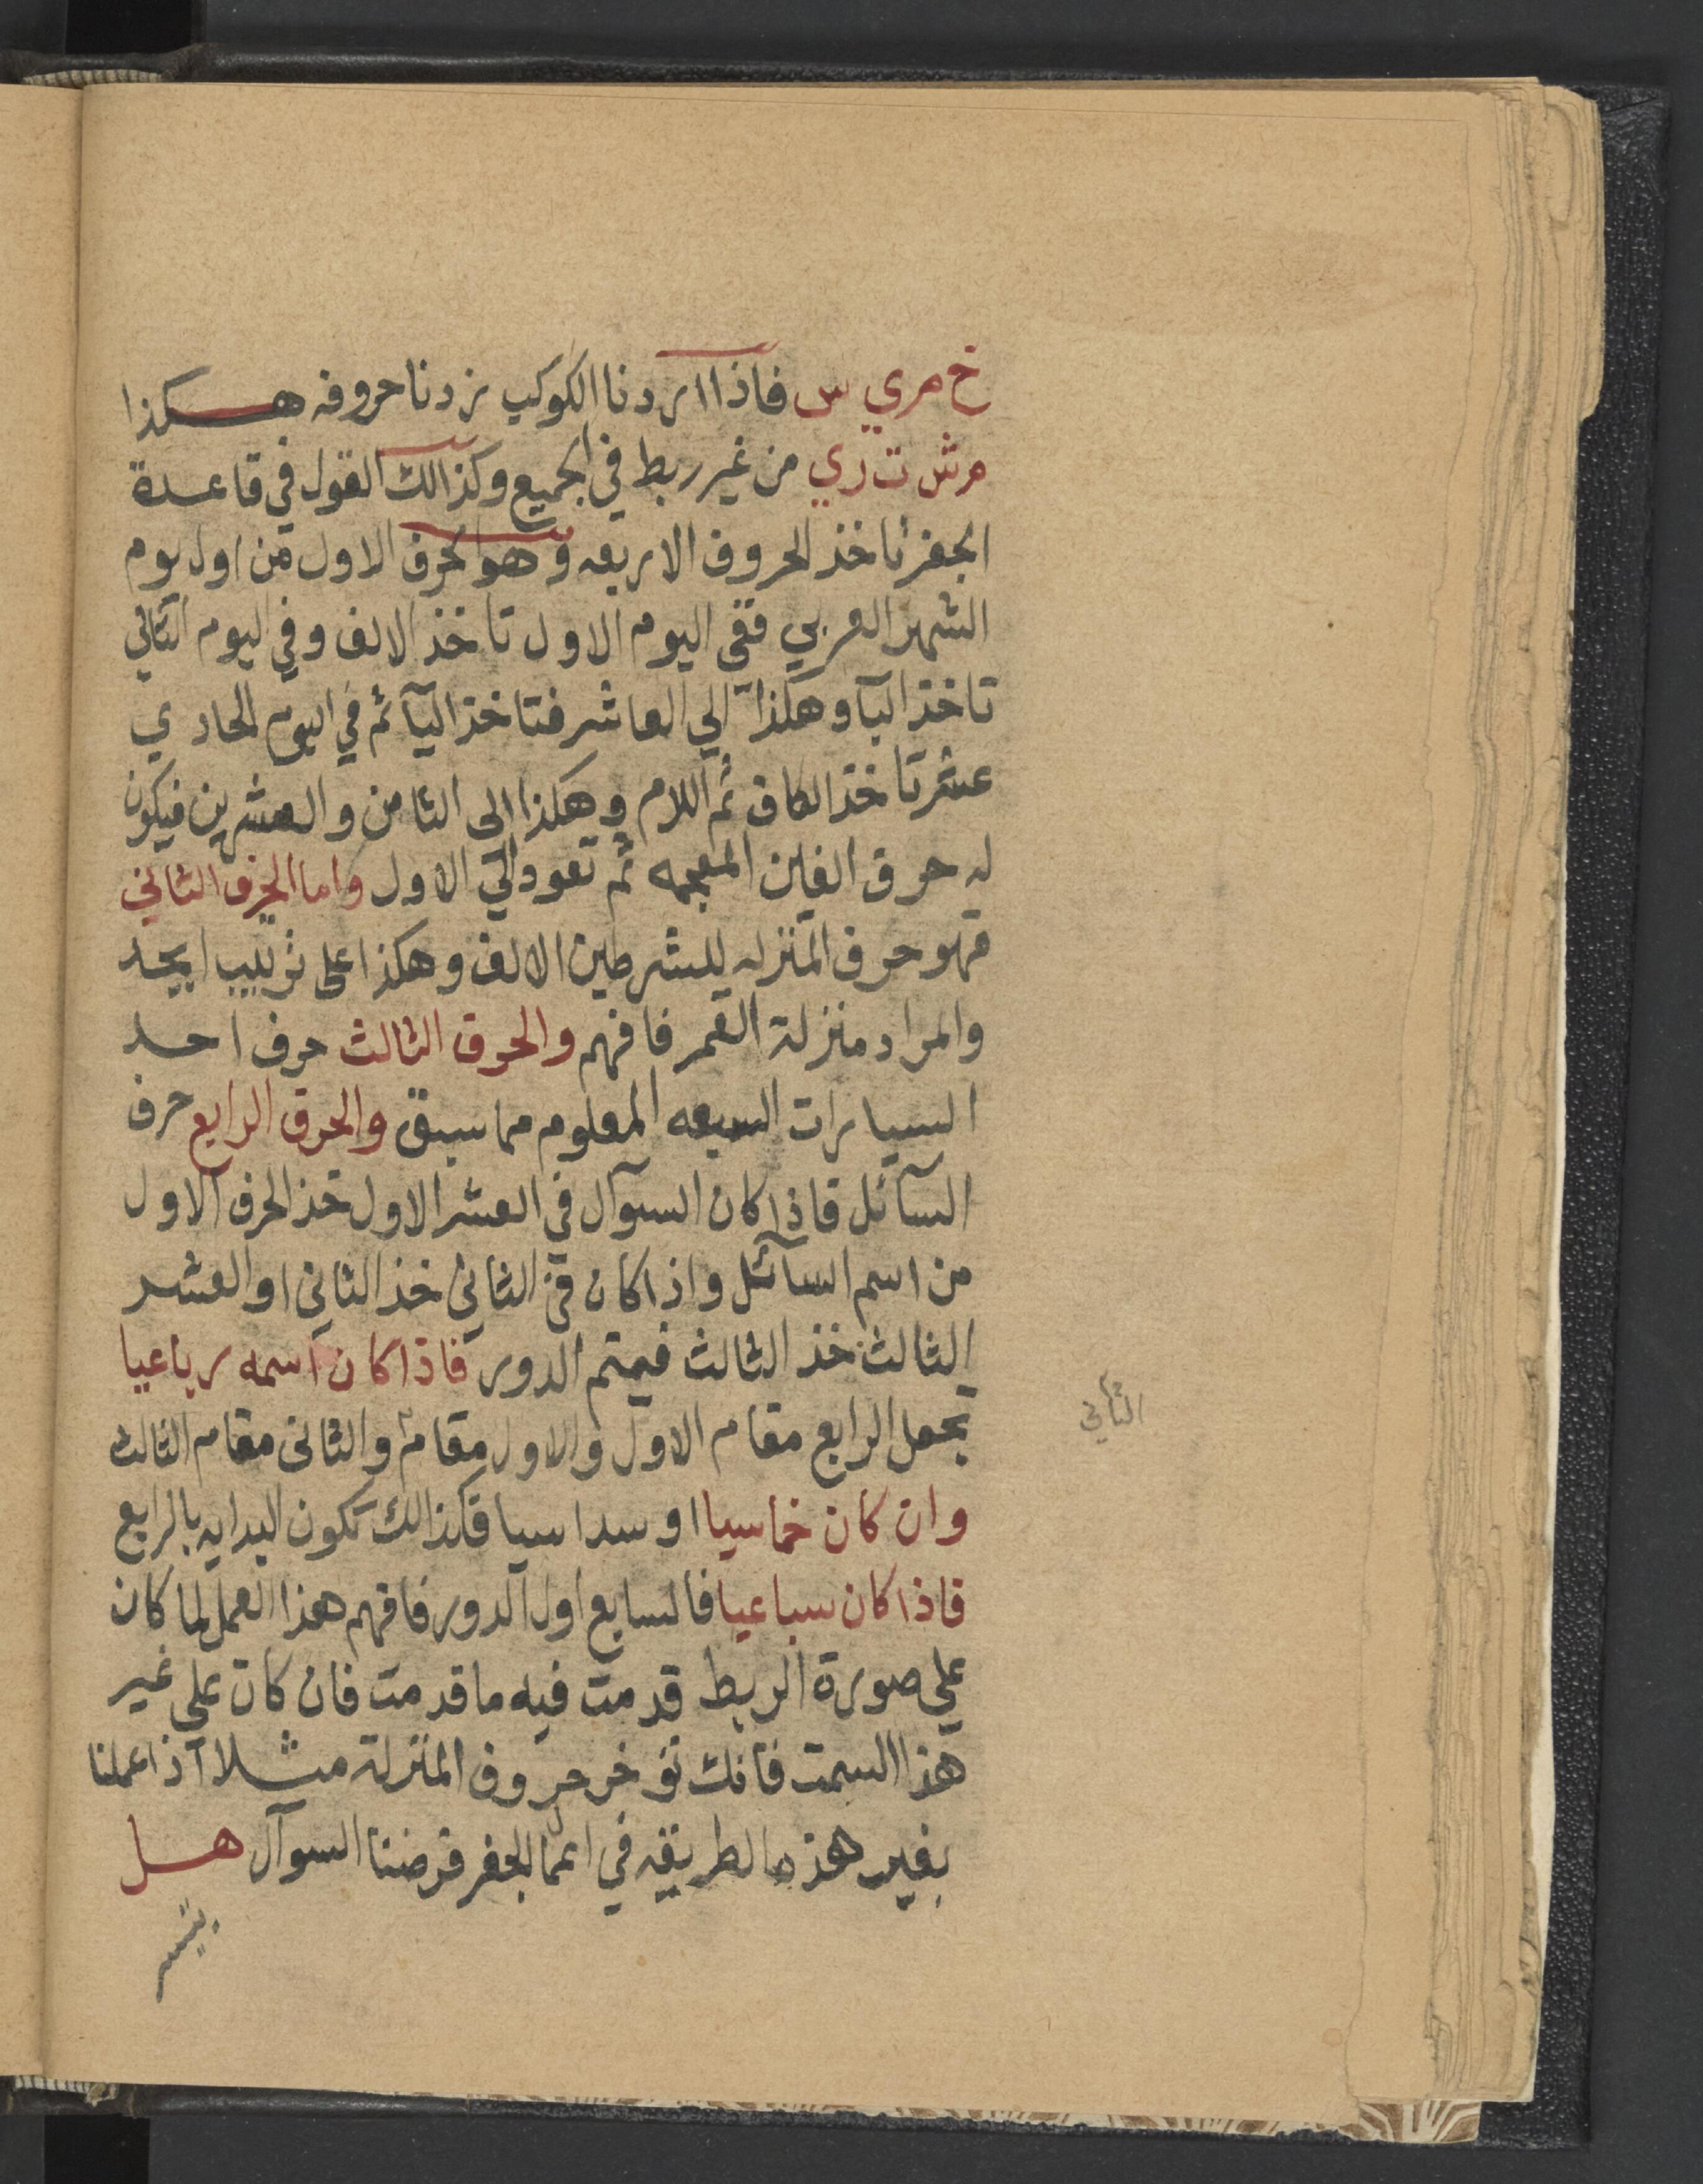 خ م ر ي س فاذا اردنا الكوكب زدنا حروفه هكذا
م ش ت ر ي من غير ربط في الجميع وكذالك القول في قاعدة
الجفر تاخذ الحروف الاربعه وهو الحرف الاول من اول يوم
الشهر العربي ففي اليوم الاول تاخذ الالف وفي اليوم الثاني
تاخذ البآ وهكذا الي العاشر فتاخذ اليآ ثم في اليوم الحادي
عشر تاخذ الكاف ثم اللام وهكذا الى الثامن والعشرين فيكون
له حرف الغين المعجمه ثم تعود الي الاول واما الحرف الثاني
فهو حرف المنزله للشرطين الالف وهكذا على ترتيب ابجد
والمراد منزلة القمر فافهم والحرف الثالث حرف احد
السيارات السبعه المعلوم مما سبق والحرف الرابع حرف
السآئل فاذا كان السوآل في العشر الاول خذ الحرف الاول
من اسم السآئل واذا كان في الثاني خذ الثاني او العشر
الثالث خذ الثالث فيتم الدور فاذا كان اسمه رباعيا
تجعل الرابع مقام الاول والاول مقام والثاني مقام الثالث
الثاني
وان كان خماسيا او سداسيا فكذالك تكون البدايه بالرابع
فاذا كان سباعيا فالسابع اول الدور فافهم هذا العمل لما كان
علي صورة الربط قدمت فيه ما قدمت فان كان علي غير
هذا السمت فانك توخر حروف المنزلة مثلا اذا عملنا
بغير هذه الطريقه في اعمال الجفر فرضنا السوآل هل
يتيسر